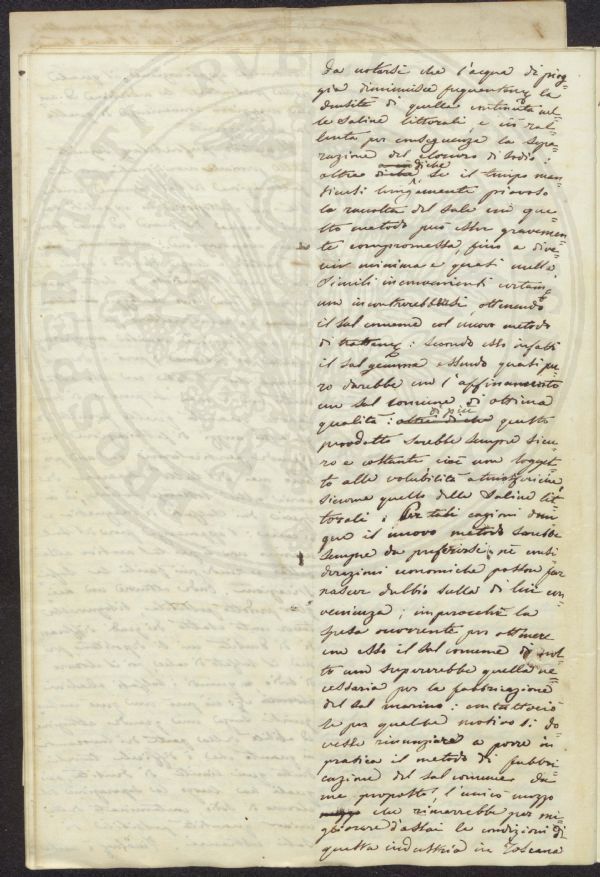 da notarsi che l'acqua di piog=
gia diminuisce frequentem.e la
densità di quella contenuta nel=
le saline littorali, e ivi ral=
lenta per conseguenza la sepa=
razione del cloruro di sodio:
oltre diche se il tempo man
tiensi lungamente piovoso
la raccolta del sale in que=
sto metodo può esser gravemen=
te compromessa, fino a dive=
nir minima e quasi nulla.
Simili inconvenienti certam.e
non incontrerebbonsi, ottenendo
il sal comune col nuovo metodo
di : secondo esso infatti
il sal gemma essendo quasi pu=
ro darebbe con l'affinamento
un sal comune di ottima
qualità: di più questo
prodotto sarebbe sempre sicu=
ro e costante cioè non sogget=
to alle volubilità atmosferiche,
siccome quello delle Saline lit=
torali; Per tali cagioni dun
que il nuovo metodo sarebbe
sempre da preferirsi, nè consi
derazioni economiche posson far
nascer dubbio sulla di lui con=
venienza; imperocchè la
spesa occorrente per ottenere
con esso il sal comune di mol=
to non supererebbe quella ne=
cessaria per la fabbricazione
del sal marino: contuttociò
se per qualche motivo si do=
vesse rinunziare a porre in
pratica il metodo di fabbri
cazione del sal comune da
me proposto, l'unico mezzo
che rimarrebbe per mi=
gliorare d'assai le condizioni di
questa industria in Toscana